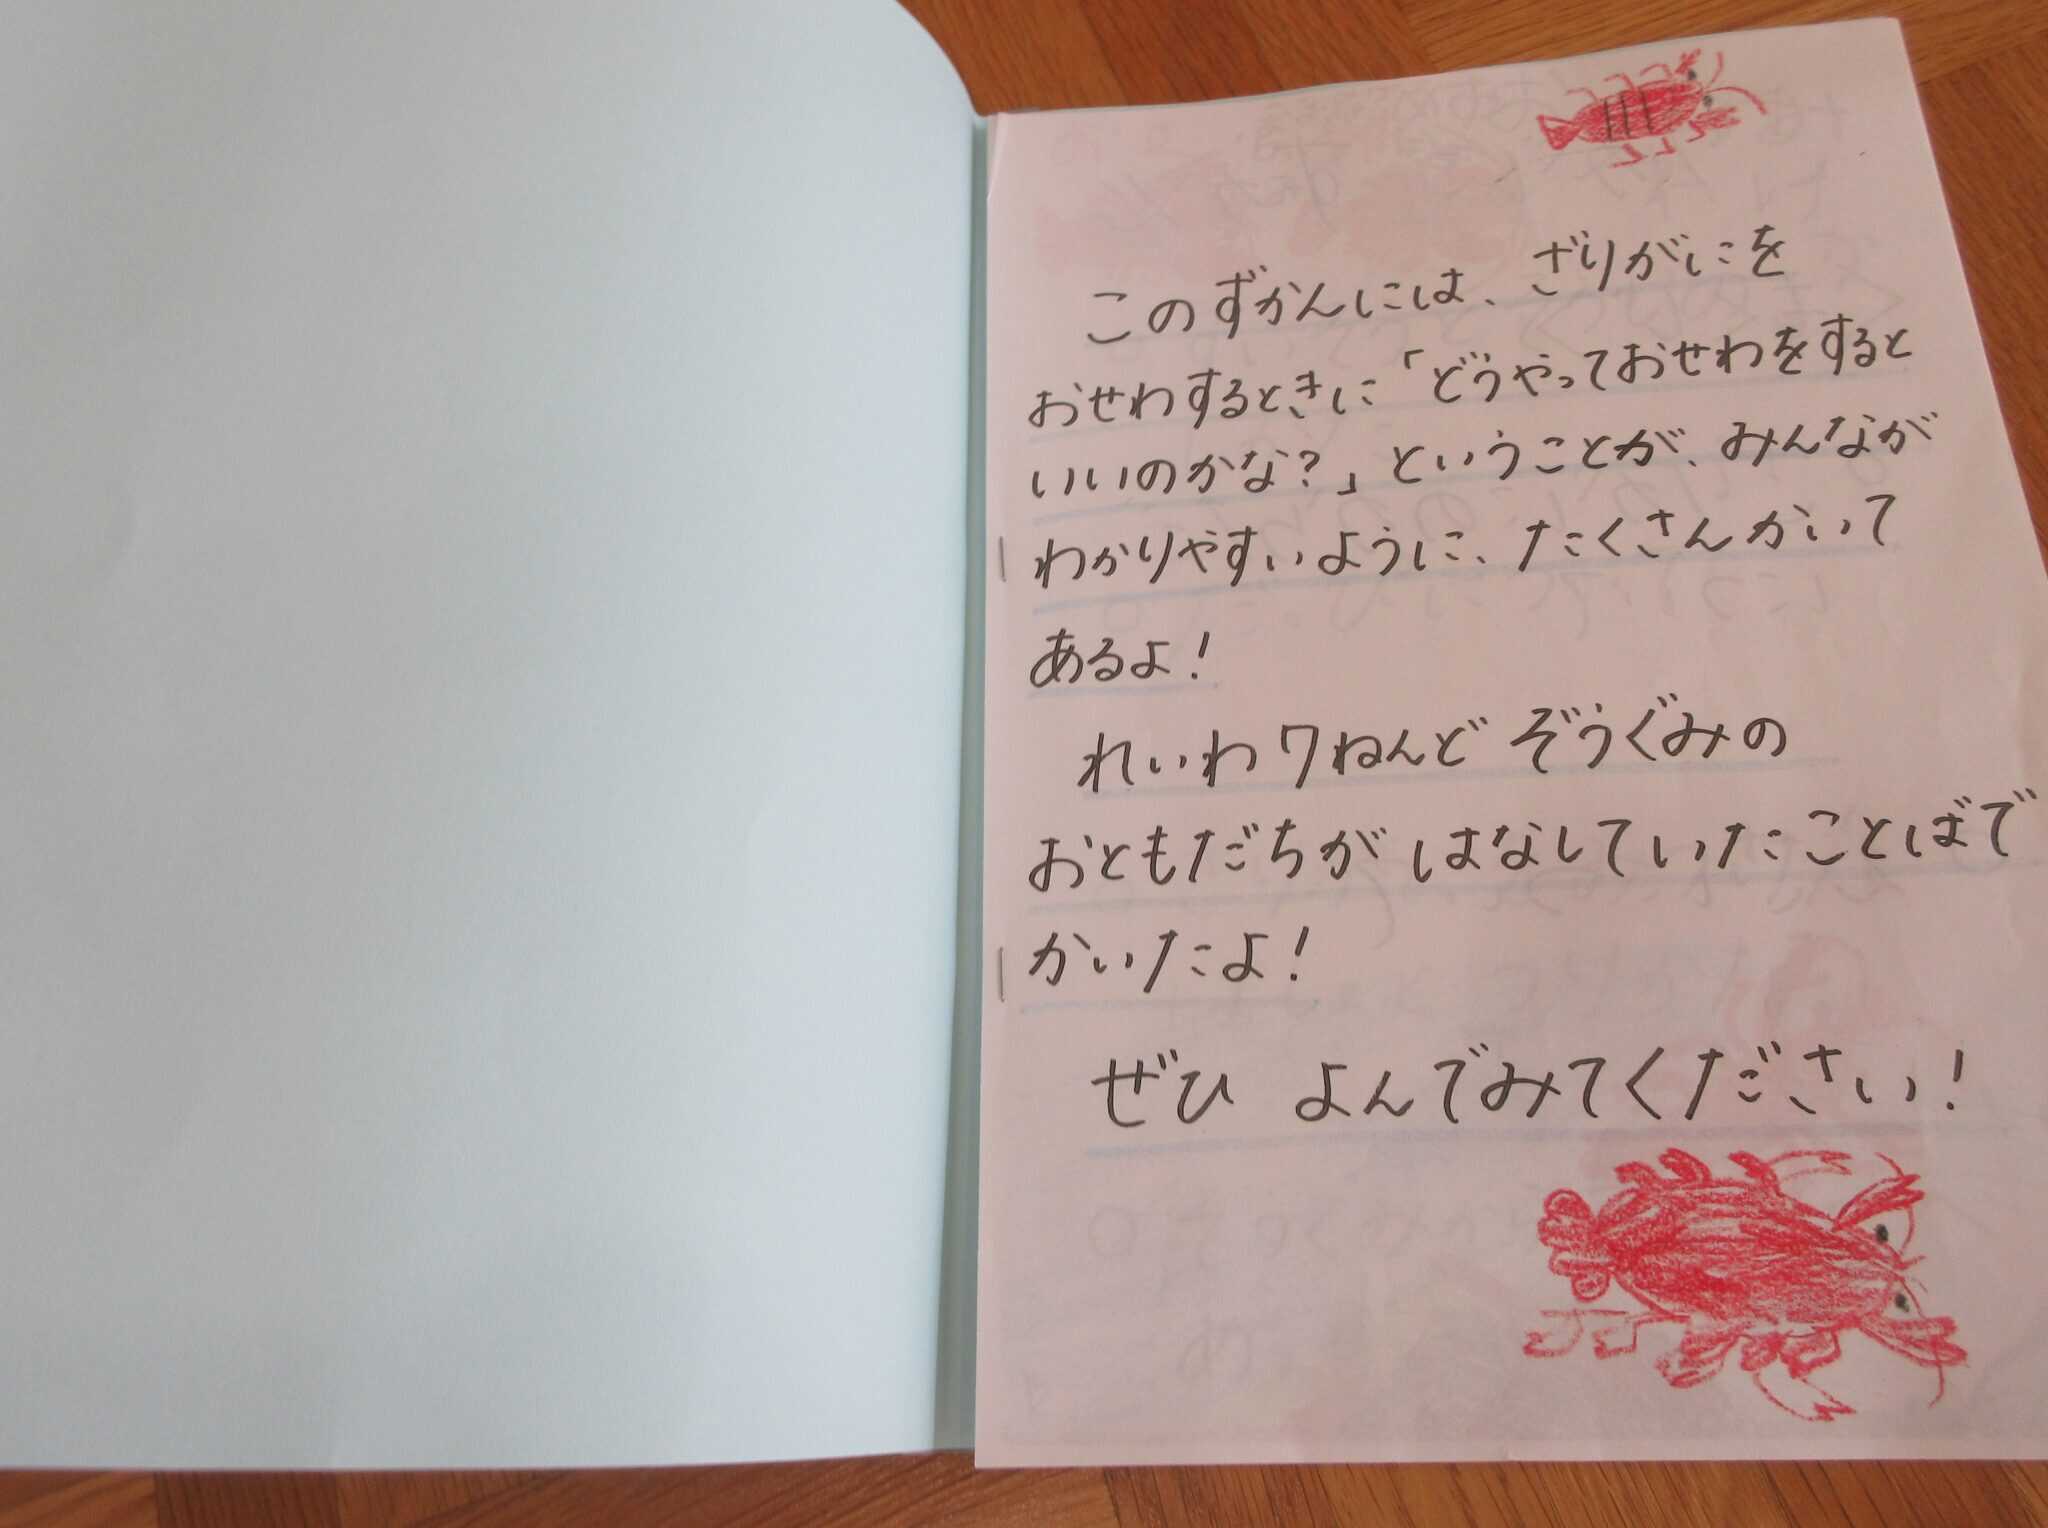 このずかんには、ざりがにを
おせわするときに「どうやっておせわをすると
いいのかな?」ということが、みんなが
わかりやすいように、たくさんかいて
あるよ!
れいわ7ねんど ぞうぐみの
おともだちが はなしていたことばで
かいたよ!
ぜひ よんでみてください!